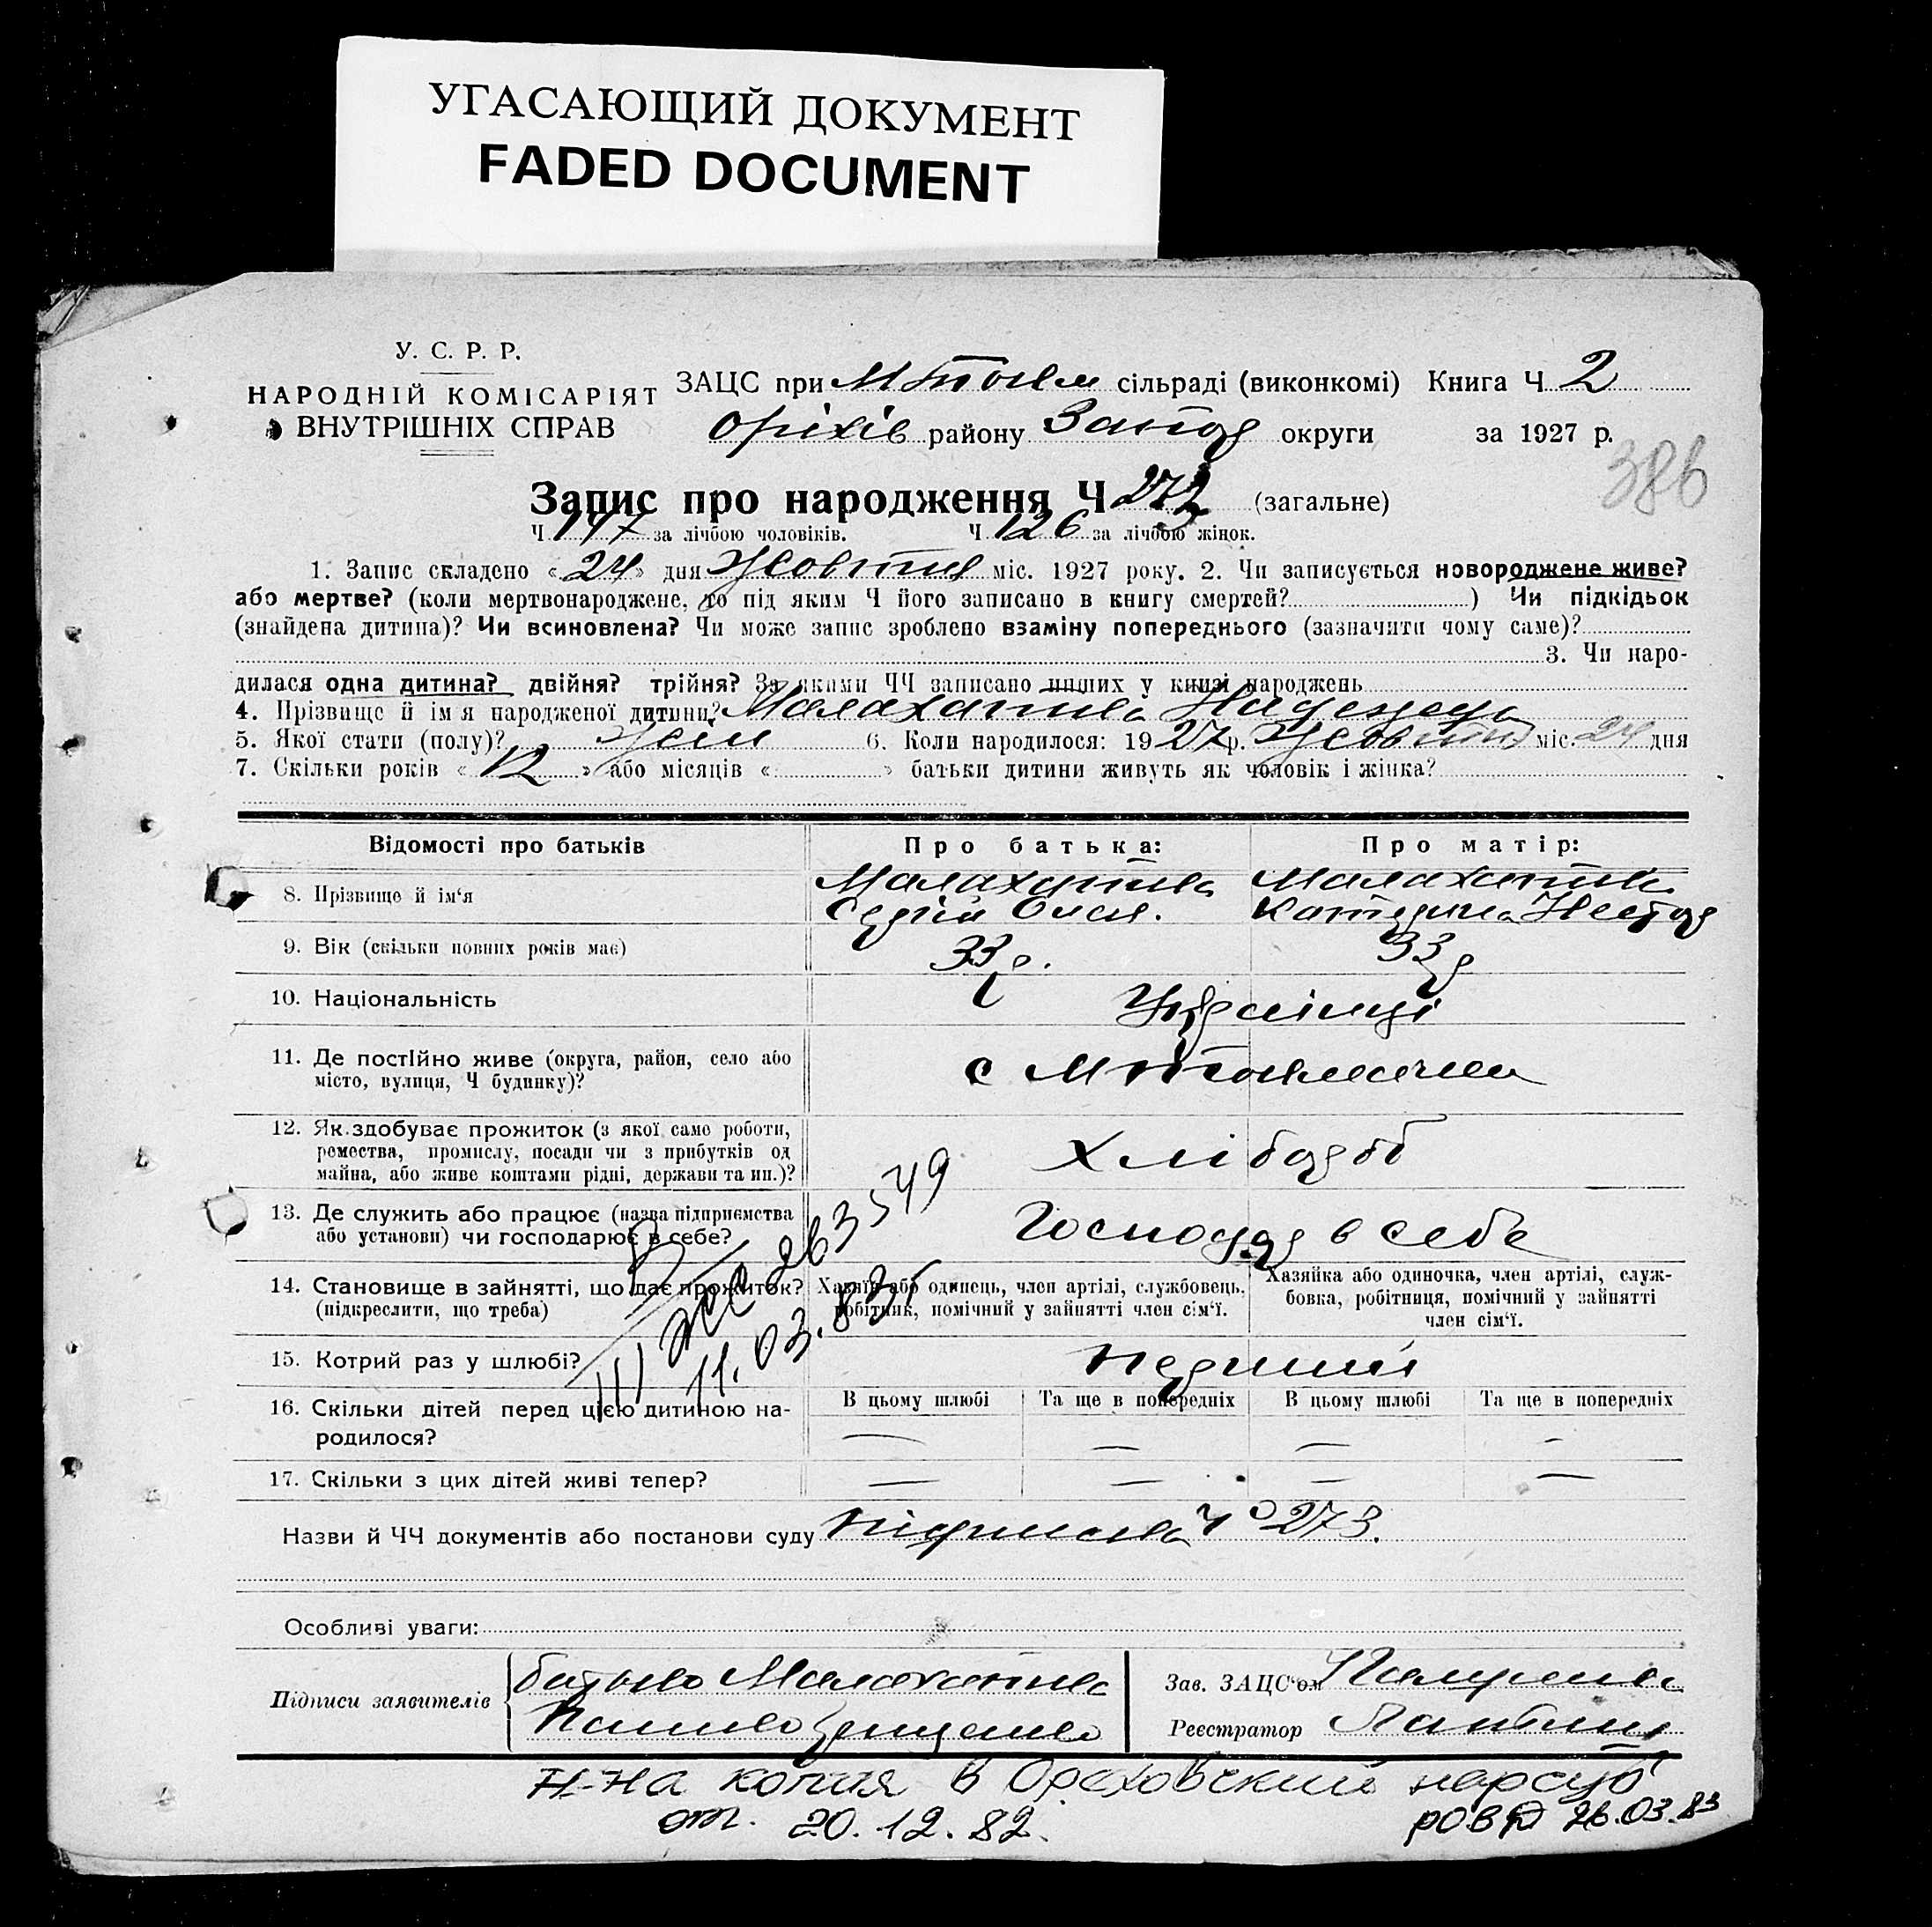 УГАСАЮЩИЙ ДОКУМЕНТ
FADED DOCUMENT
У. С. Р. Р.
НАРОДНІЙ КОМІСАРІЯТ
ВНУТРІШНІХ СПРАВ
ЗАЦС при М Токм сільраді (виконкомі) Книга Ч 2
Оріхів району Запор округи за 1927 р.
386
Запис про народження Ч 273 (загальне)
Ч 147 за лічбою чоловіків. Ч 126 за лічбою жінок.
1. Запис складено « 24 » дня Жовтня міс. 1927 року. 2. Чи записується новороджене живе?
або мертве? (коли мертвонароджене, то під яким Ч його записано в книгу смертей? ) Чи підкідьок
(знайдена дитина)? Чи всиновлена? Чи може запис зроблено взаміну попереднього (зазначити чому саме)?
3. Чи наро-
дилася одна дитина? двійня? трійня? За якими ЧЧ записано инших у книзі народжень
4. Прізвище й ім'я народженої дитини? Надежда
5. Якої стати (полу)? жін 6. Коли народилося: 1927 р. Жовтня міс. 24 дня
7. Скільки років « 12 » або місяців « » батьки дитини живуть як чоловік і жінка?
Відомості про батьків Про батька: Про матір:
8. Прізвище й ім'я
Сергій Катерина Нестор
9. Вік (скільки повних років має) 33 р. 33 р
10. Національність Українці
11. Де постійно живе (округа, район, село або
місто, вулиця, Ч будинку)? с М Токмачка
12. Як здобуває прожиток (з якої само роботи,
ремества, промислу, посади чи з прибутків од
майна, або живе коштами рідні, держави та ин.)? Хлібороб
13. Де служить або працює (назва підприємства
або установи) чи господарює в себе? Господар в себе
14. Становище в зайнятті, що дає прожиток?
(підкреслити, що треба)
Хазяїн або одинець, член артілі, службовець,
робітник, помічний у зайнятті член сім'ї.
Хазяйка або одиночка, член артілі, служ-
бовка, робітниця, помічний у зайнятті
член сім'ї.
263549
11.03.83г
15. Котрий раз у шлюбі? перший
16. Скільки дітей перед цією дитиною на-
родилося?
В цьому шлюбі Та ще в попередніх В цьому шлюбі Та ще в попередніх
— — — —
17. Скільки з цих дітей живі тепер? — — — —
Назви й ЧЧ документів або постанови суду Ч 273.
Особливі уваги:
Підписи заявителів
батько
Зав. ЗАЦС'ом
Реєстратор
Н-на копия в Ореховский нарсуд
от. 20.12.82.
РОВД 26.03.83